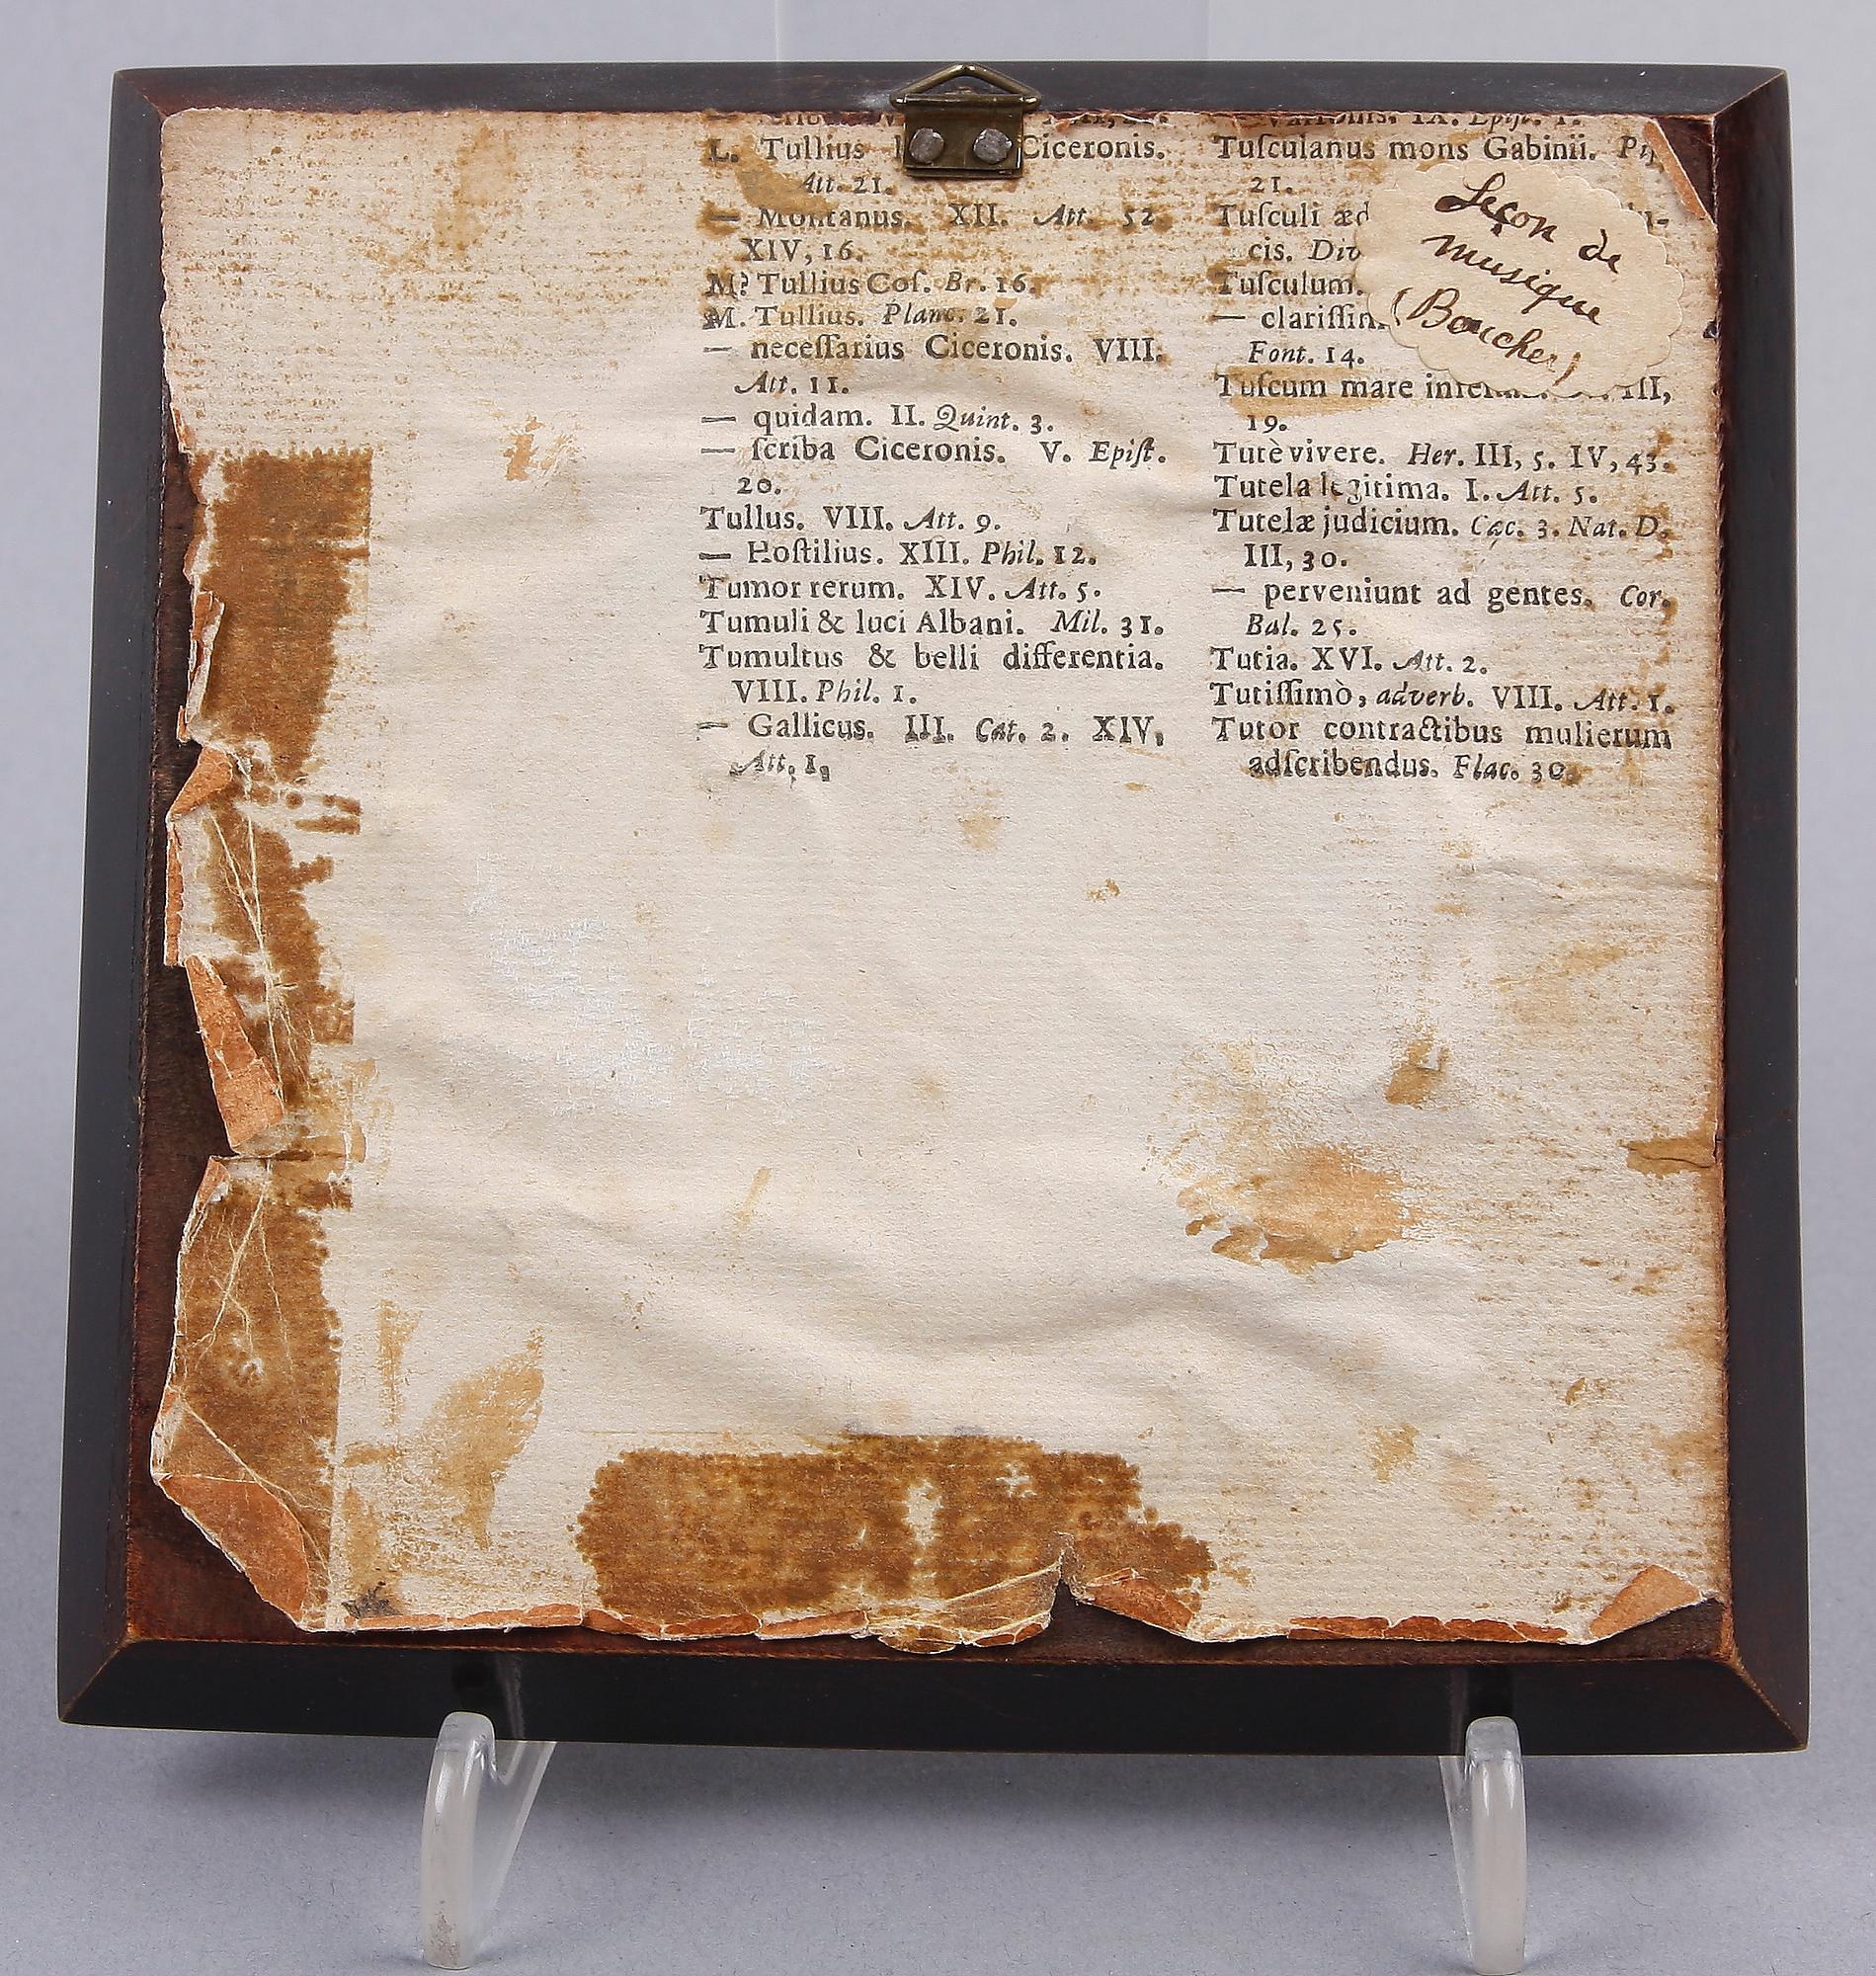 L. Tullius Ciceronis.
Att. 21.
— Montanus. XII. Att. 52.
XIV, 16.
M? Tullius Coſ. Br. 16.
M. Tullius. Planc. 21.
— neceſſarius Ciceronis. VIII.
Att. 11.
— quidam. II. Quint. 3.
— ſcriba Ciceronis. V. Epiſt.
20.
Tullus. VIII. Att. 9.
— Hoſtilius. XIII. Phil. 12.
Tumor rerum. XIV. Att. 5.
Tumuli & luci Albani. Mil. 31.
Tumultus & belli differentia.
VIII. Phil. 1.
— Gallicus. III. Cat. 2. XIV,
Att. 1,
IX. Epiſt. 1.
Tuſculanus mons Gabinii.
21.
Tuſculi
cis.
Tuſculum.
—
Font. 14.
Tuſcum mare III,
19.
Tutè vivere. Her. III, 5. IV, 43.
Tutela legitima. I. Att. 5.
Tutelæ judicium. Cæc. 3. Nat. D.
III, 30.
— perveniunt ad gentes. Cor.
Bal. 25.
Tutia. XVI. Att. 2.
Tutiſſimò, adverb. VIII. Att. 1.
Tutor contractibus mulierum
adſcribendus. Flac. 30.
Leçon de
musique
(Boucher)